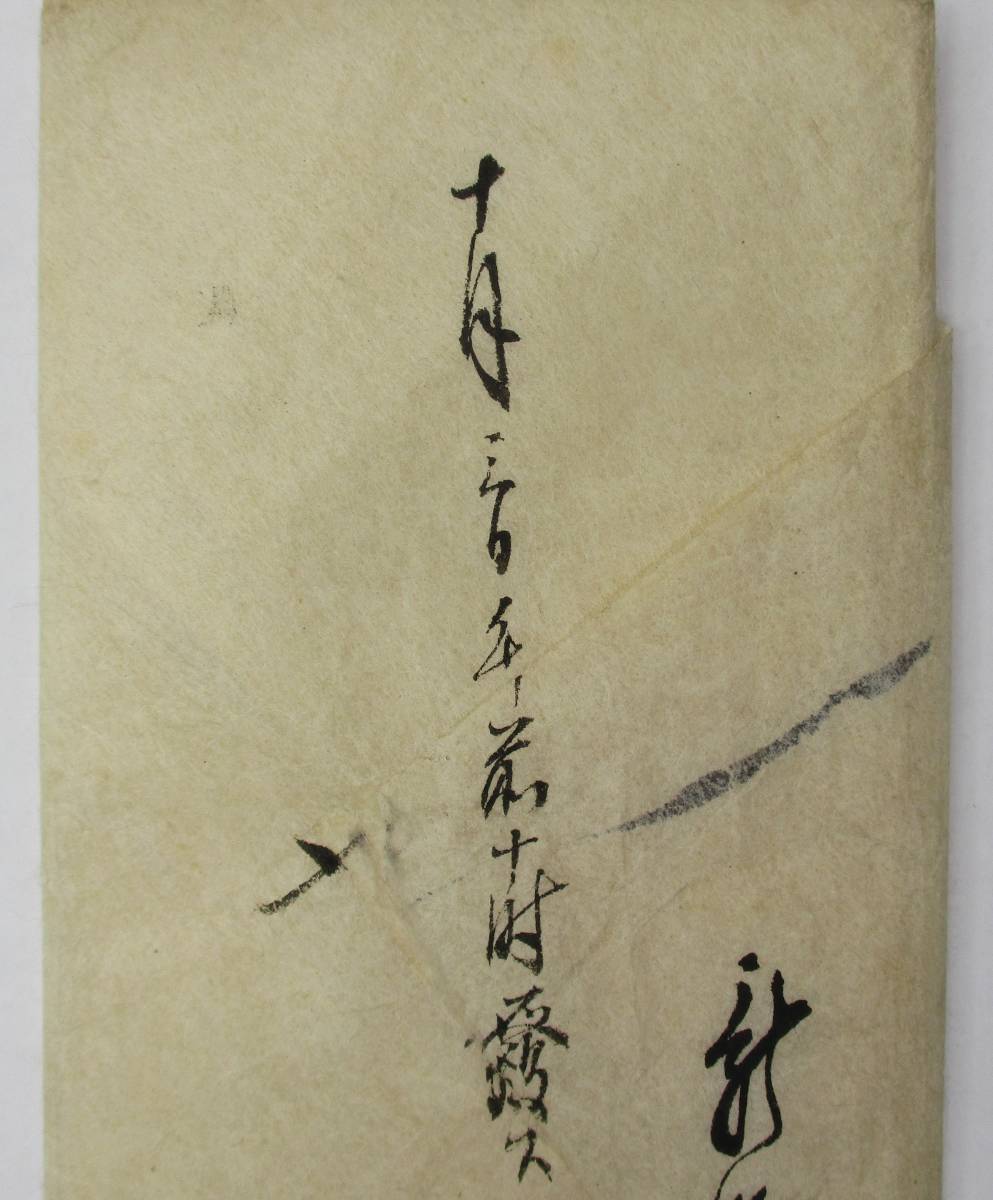 新
十月三日午前十時發ス